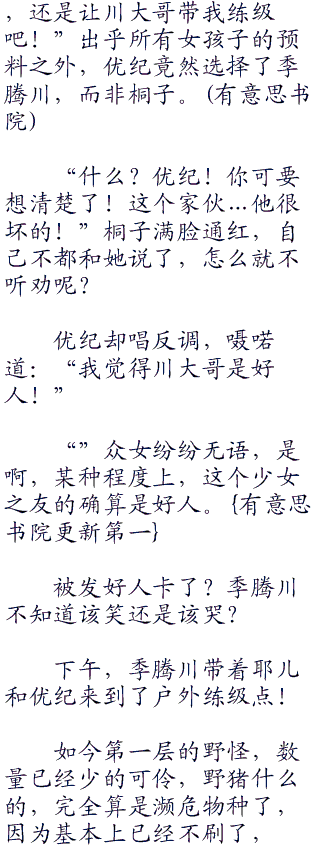 ，还是让川大哥带我练级
吧！”出乎所有女孩子的预
料之外，优纪竟然选择了季
腾川，而非桐子。(有意思书
院)
“什么？优纪！你可要
想清楚了！这个家伙...他很
坏的！”桐子满脸通红，自
己不都和她说了，怎么就不
听劝呢？
优纪却唱反调，嗫喏
道：“我觉得川大哥是好
人！”
“”众女纷纷无语，是
啊，某种程度上，这个少女
之友的确算是好人。{有意思
书院更新第一}
被发好人卡了？季腾川
不知道该笑还是该哭？
下午，季腾川带着耶儿
和优纪来到了户外练级点！
如今第一层的野怪，数
量已经少的可伶，野猪什么
的，完全算是濒危物种了，
因为基本上已经不刷了，